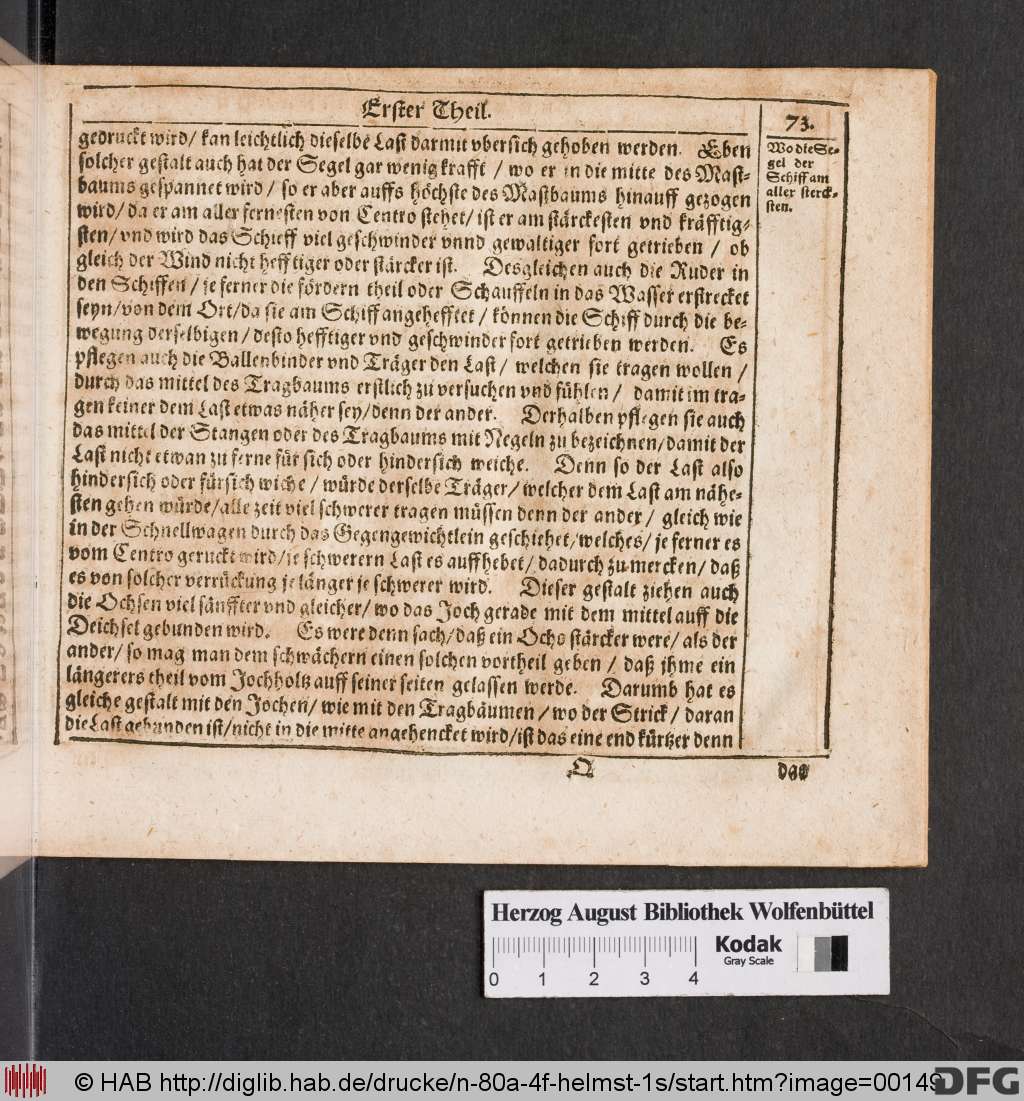 Erster Theil.
73.
gedruckt wird/ kan leichtlich dieselbe Last darmit vbersich gehoben werden. Eben
solcher gestalt auch hat der Segel gar wenig krafft / wo er in die mitte des Mast-
baums gespannet wird / so er aber auffs höchste des Mastbaums hinauff gezogen
wird/ da er am aller fernesten von Centro stehet/ ist er am stärckesten vnd kräfftig-
sten/ vnd wird das Schieff viel geschwinder vnnd gewaltiger fort getrieben / ob
gleich der Wind nicht hefftiger oder stärcker ist. Desgleichen auch die Ruder in
den Schiffen / je ferner die fördern theil oder Schauffeln in das Wasser erstrecket
seyn/ von dem Ort/ da sie am Schiff angehefftet / können die Schiff durch die be-
wegung derselbigen / desto hefftiger vnd geschwinder fort getrieben werden. Es
pflegen auch die Ballenbinder vnd Träger den Last / welchen sie tragen wollen /
durch das mittel des Tragbaums erstlich zu versuchen vnd fühlen / damit im tra-
gen keiner dem Last etwas näher sey/ denn der ander. Derhalben pflegen sie auch
das mittel der Stangen oder des Tragbaums mit Negeln zu bezeichnen/ damit der
Last nicht etwan zu ferne für sich oder hindersich weiche. Denn so der Last also
hindersich oder fürsich wiche / würde derselbe Träger/ welcher dem Last am nähe-
sten gehen würde/ alle zeit viel schwerer tragen müssen denn der ander / gleich wie
in der Schnellwagen durch das Gegengewichtlein geschiehet/ welches/ je ferner es
vom Centro geruckt wird/ je schwerern Last es auffhebet/ dadurch zu mercken/ daß
es von solcher verrückung je länger je schwerer wird. Dieser gestalt ziehen auch
die Ochsen viel sänffter vnd gleicher/ wo das Joch gerade mit dem mittel auff die
Deichsel gebunden wird. Es were denn sach/ daß ein Ochs stärcker were/ als der
ander/ so mag man dem schwächern einen solchen vortheil geben / daß jhme ein
längerers theil vom Jochholtz auff seiner seiten gelassen werde. Darumb hat es
gleiche gestalt mit den Jochen/ wie mit den Tragbäumen / wo der Strick / daran
die Last gebunden ist/ nicht in die mitte angehencket wird/ ist das eine end kürtzer denn
Wo die Se-
gel der
Schiff am
aller sterck-
sten.
Herzog August Bibliothek Wolfenbüttel
Kodak
Gray Scale
0 1 2 3 4
© HAB http://diglib.hab.de/drucke/n-80a-4f-helmst-1s/start.htm?image=00149
DFG